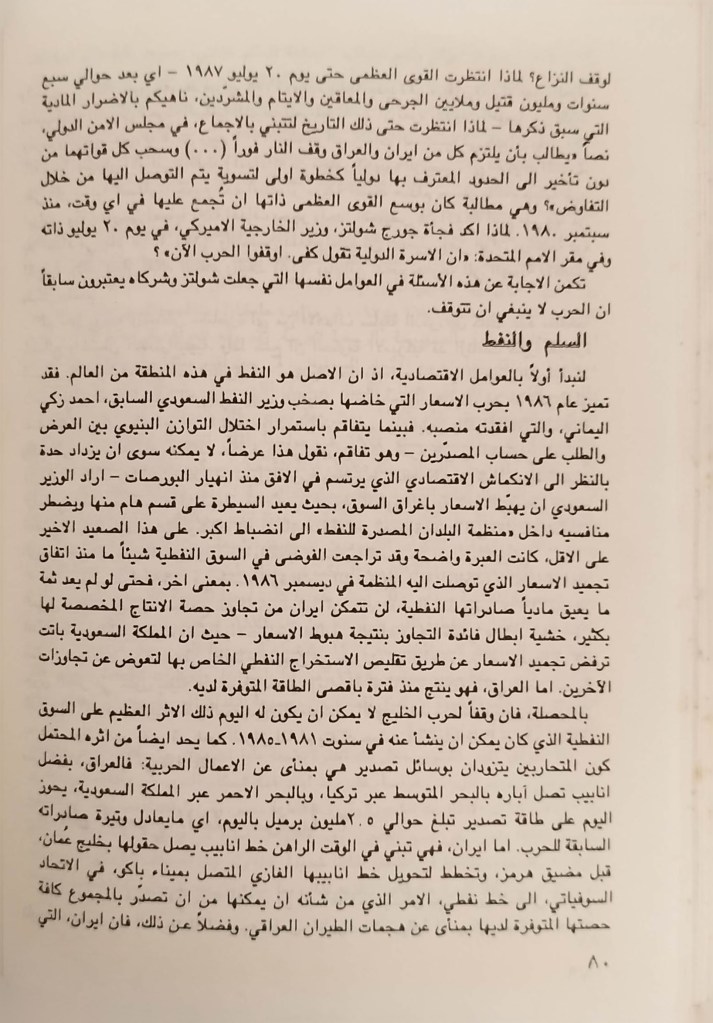 لوقف النزاع؟ لماذا انتظرت القوى العظمى حتى يوم ٢٠ يوليو ١٩٨٧ – اي بعد حوالي سبع
سنوات ومليون قتيل وملايين الجرحى والمعاقين والايتام والمشرّدين، ناهيكم بالاضرار المادية
التي سبق ذكرها – لماذا انتظرت حتى ذلك التاريخ لتتبني بالاجماع، في مجلس الامن الدولي،
نصاً «يطالب بأن يلتزم كل من ايران والعراق وقف النار فوراً (٠٠٠) وسحب كل قواتهما من
دون تأخير الى الحدود المعترف بها دولياً كخطوة اولى لتسوية يتم التوصل اليها من خلال
التفاوض»؟ وهي مطالبة كان بوسع القوى العظمى ذاتها ان تُجمع عليها في اي وقت، منذ
سبتمبر ١٩٨٠. لماذا اكد فجأة جورج شولتز، وزير الخارجية الاميركي، في يوم ٢٠ يوليو ذاته
وفي مقر الامم المتحدة: «ان الاسرة الدولية تقول كفى. اوقفوا الحرب الآن» ؟
تكمن الاجابة عن هذه الأسئلة في العوامل نفسها التي جعلت شولتز وشركاه يعتبرون سابقاً
ان الحرب لا ينبغي ان تتوقف.
السلم والنفط
لنبدأ أولاً بالعوامل الاقتصادية، اذ ان الاصل هو النفط في هذه المنطقة من العالم. فقد
تميز عام ١٩٨٦ بحرب الاسعار التي خاضها بصخب وزير النفط السعودي السابق، احمد زكي
اليماني، والتي افقدته منصبه. فبينما يتفاقم باستمرار اختلال التوازن البنيوي بين العرض
والطلب على حساب المصدّرين – وهو تفاقم، نقول هذا عرضاً، لا يمكنه سوى ان يزداد حدة
بالنظر الى الانكماش الاقتصادي الذي يرتسم في الافق منذ انهيار البورصات – اراد الوزير
السعودي ان يهبّط الاسعار باغراق السوق، بحيث يعيد السيطرة على قسم هام منها ويضطر
منافسيه داخل «منظمة البلدان المصدرة للنفط» الى انضباط اكبر. على هذا الصعيد الاخير
على الاقل، كانت العبرة واضحة وقد تراجعت الفوضى في السوق النفطية شيئاً ما منذ اتفاق
تجميد الاسعار الذي توصلت اليه المنظمة في ديسمبر ١٩٨٦. بمعنى اخر، فحتى لو لم يعد ثمة
ما يعيق مادياً صادراتها النفطية، لن تتمكن ايران من تجاوز حصة الانتاج المخصصة لها
بكثير، خشية ابطال فائدة التجاوز بنتيجة هبوط الاسعار – حيث ان المملكة السعودية باتت
ترفض تجميد الاسعار عن طريق تقليص الاستخراج النفطي الخاص بها لتعوض عن تجاوزات
الآخرين. اما العراق، فهو ينتج منذ فترة باقصى الطاقة المتوفرة لديه.
بالمحصلة، فان وقفاً لحرب الخليج لا يمكن ان يكون له اليوم ذلك الاثر العظيم على السوق
النفطية الذي كان يمكن ان ينشأ عنه في سنوت ١٩٨١-١٩٨٥. كما يحد ايضاً من اثره المحتمل
كون المتحاربين يتزودان بوسائل تصدير هي بمنأى عن الاعمال الحربية: فالعراق، بفضل
انابيب تصل آباره بالبحر المتوسط عبر تركيا، وبالبحر الاحمر عبر المملكة السعودية، يحوز
اليوم على طاقة تصدير تبلغ حوالي ٢.٥مليون برميل باليوم، اي مايعادل وتيرة صادراته
السابقة للحرب. اما ايران، فهي تبني في الوقت الراهن خط انابيب يصل حقولها بخليج عُمان،
قبل مضيق هرمز، وتخطط لتحويل خط انابيبها الغازي المتصل بميناء باكو، في الاتحاد
السوفياتي، الى خط نفطي، الامر الذي من شأنه ان يمكنها من ان تصدّر بالمجموع كافة
حصتها المتوفرة لديها بمنأى عن هجمات الطيران العراقي. وفضلاً عن ذلك، فان ايران، التي
٨٠